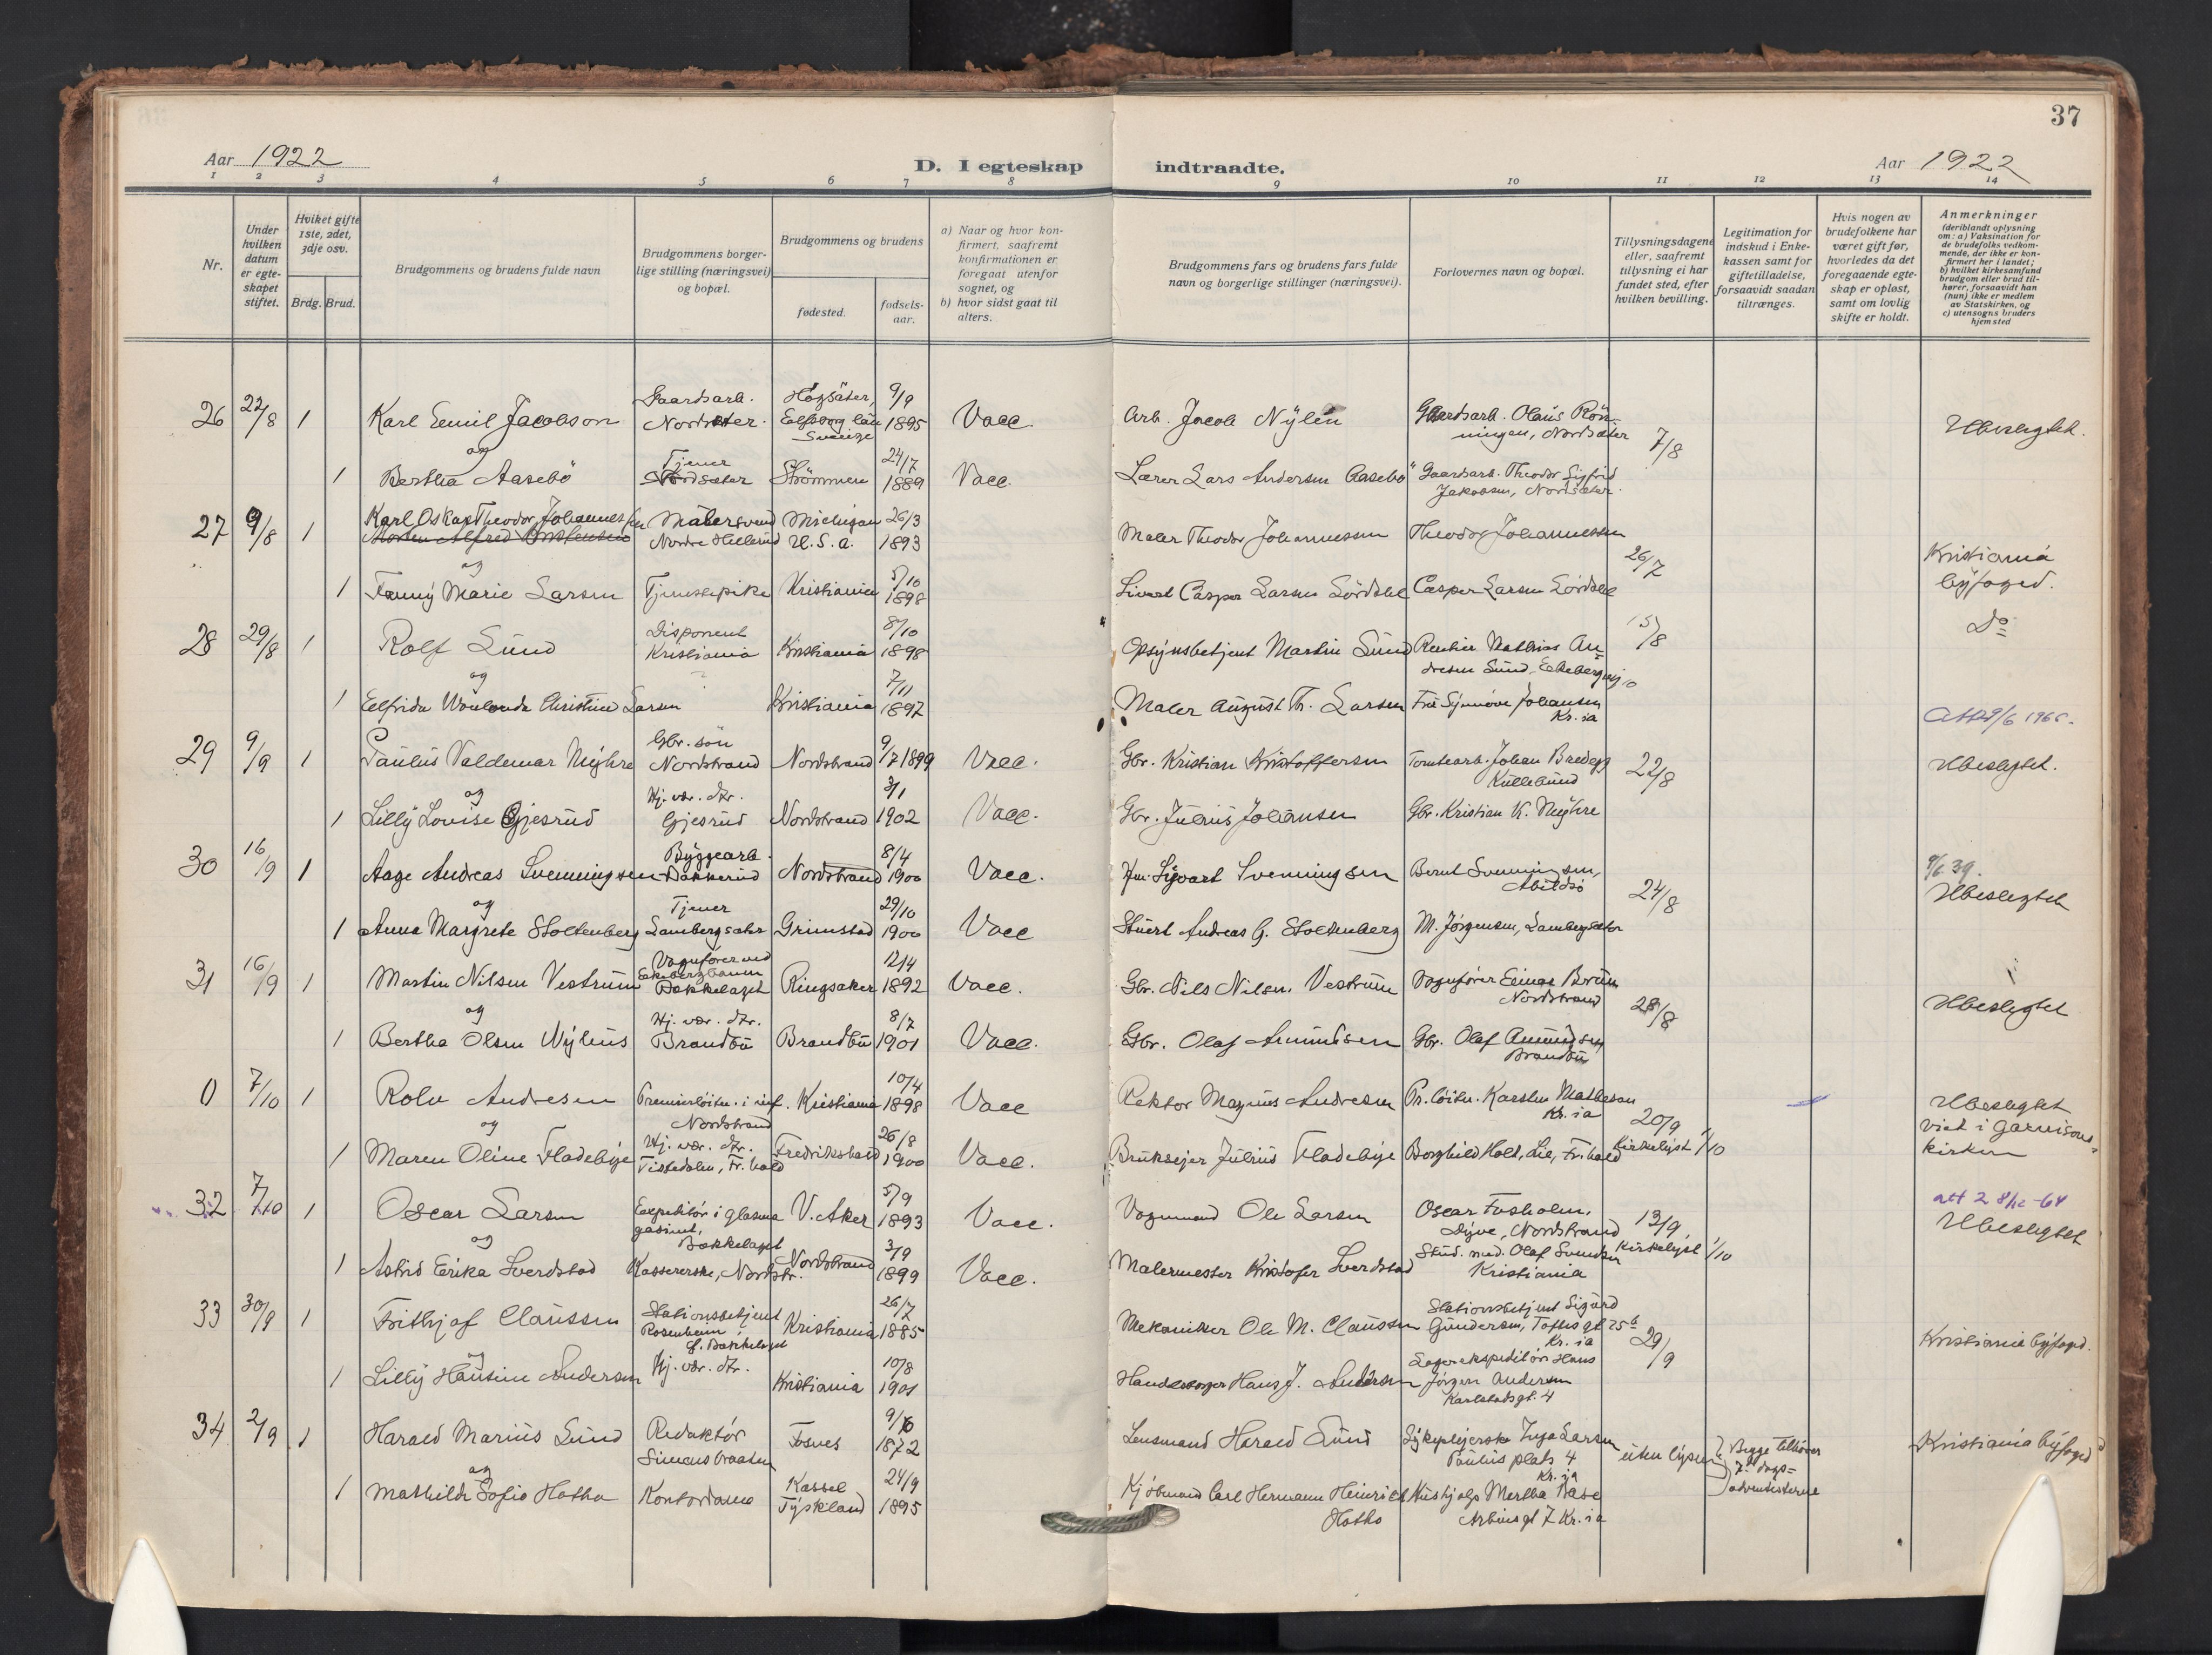 37
Aar 1922
D. I egteskap indtraadte.
Aar 1922
1 2 3 4 5 6 7 8 9 10 11 12 13 14
Nr.
Under hvilken datum er egteskapet stiftet.
Hviket gifte 1ste, 2det, 3dje osv.
Brdg. Brud.
Brudgommens og brudens fulde navn
Brudgommens borgerlige stilling (næringsvei) og bopæl.
Brudgommens og brudens
fødested.
fødselsaar.
a) Naar og hvor konfirmert, saafremt konfirmationen er foregaat utenfor sognet, og
b) hvor sidst gaat til alters.
Brudgommens fars og brudens fars fulde navn og borgerlige stillinger (næringsvei).
Forlovernes navn og bopæl.
Tillysningsdagene eller, saafremt tillysning ei har fundet sted, efter hvilken bevilling.
Legitimation for indskud i Enkekassen samt for giftetilladelse, forsaavidt saadan tiltrænges.
Hvis nogen av brudefolkene har været gift før, hvorledes da det foregaaende egteskap er opløst, samt om lovlig skifte er holdt.
Anmerkninger
(deriblandt oplysning om: a) Vaksination for de brudefolks vedkommende, der ikke er konfirmert her i landet;
b) hvilket kirkesamfund brudgom eller brud tilhører, forsaavidt han (hun) ikke er medlem av Statskirken, og
c) utensogns bruders hjemsted
26 22/8 1 Karl Emil Jacobson Gaardsarb. Nordseter. Högsäter, Elfsborg län Sverige 9/9 1895 Vacc. Arb. Jacob Nylén Gaardsarb. Olaus Rönningen, Nordsæter 7/8 Ubeslegtet.
og
1 Bertha Aasebö Tjener Nordseter Strömmen 24/7 1889 Vacc. Lærer Lars Andersen Aasebö Gaardsarb. Theodor Sigfrid Jakobsen, Nordsæter.
27 9/8 1 Karl Oskar Theodor Johannessen Malersvend Nordre Hellerud Michigan U.S.A. 26/3 1893 Maler Theodor Johannessen Theodor Johannessen 26/7 Kristiania byfoged.
og
1 Fanny Marie Larsen Tjenestepike Kristiania 5/10 1898 Casper Larsen Casper Larsen
28 29/8 1 Rolf Sund Disponent Kristiania Kristiania 8/10 1898 Opsynsbetjent Martin Sund Rentier Mathias Andresen Sund, Ekebergvej 10 15/8 Do
og
1 Elfrida Christine Larsen Kristiania 7/11 1897 Maler August Th. Larsen Frk Synnöve Johansen Kr.ia
29 9/9 1 Paulus Valdemar Myhre Gbr. sön Nordstrand Nordstrand 9/7 1899 Vacc. Gbr. Kristian Kristoffersen Tomtearb. Johan Bredegg Kullebund 22/8 Ubeslegtet.
og
1 Lilly Lovise Gjesrud Hj. vær. dtr. Gjesrud Nordstrand 3/1 1902 Vacc. Gbr. Julius Johansen Gbr. Kristian K. Myhre
30 16/9 1 Aage Andreas Svenningsen Byggearb. Bakkerud Nordstrand 8/4 1900 Vacc. Sigvart Svenningsen Bernt Svenningsen, Abildsö 24/8 9/6 39. Ubeslegtet
og
1 Anna Margrete Stoltenberg Tjener Lambergseter Grimstad 29/10 1900 Vacc Stuert Andreas G. Stoltenberg M. Jörgensen, Lambergseter
31 16/9 1 Martin Nilsen Vestrum Vognförer ved Ekebergbanen Bækkelaget Ringsaker 12/4 1892 Vacc. Gbr. Nils Nilsen Vestrum Vognförer Einar Bruun Nordstrand 28/8 Ubeslegtet
og
1 Bertha Olsen Nylius Hj. vær. dtr. Brandbu Brandbu 8/7 1901 Vacc. Gbr. Olaf Amundsen Gbr. Olaf Amundsen Brandbu
0 7/10 1 Rolv Andresen Premierlöitn. i inf. Nordstrand Kristiania 10/4 1898 Vacc Rektor Magnus Andresen Pr. löitn. Karsten Mathesen Kr.ia 20/9 Ubeslegtet viet i Garnisonskirken
og
1 Maren Oline Fladebye Hj. vær. dtr. Tistedalen, Fr.hald Fredrikshald 26/8 1900 Vacc. Brukseier Julius Fladebye Borghild Holt, Lie, Fr.hald Kirkelyst 1/10
32 7/10 1 Oscar Larsen Expeditör i glasmagasinet, Bækkelaget V. Aker 5/9 1893 Vacc. Vognmand Ole Larsen Oscar Fosholm, Dyve, Nordstrand 13/9 Ubeslegtet
og
1 Astrid Erika Sverdstad Kassererske, Nordstr. Nordstrand 3/9 1899 Vacc. Malermester Kristofer Sverdstad Stud. med. Olaf Svendsen Kristiania Kirkelyst 1/10
33 30/9 1 Frithjof Claussen Stationsbetjent Rosenheim Bækkelaget Kristiania 26/7 1885 Mekaniker Ole M. Claussen Stationsbetjent Sigurd Gundersen, Toftes gt 25b Kr.ia 29/9 Kristiania byfoged.
og
1 Lilly Hansine Andersen Hj. vær. dtr. Kristiania 10/8 1901 Handelsborger Hans J. Andersen Lagerekspeditör Hans Jörgen Andersen Karlstadsgt. 4
34 2/9 1 Harald Marius Sund Redaktör Simensbraaten Fosnes 9/6 1872 Lensmand Harald Sund Sykepleierske Inga Larsen Paulus plats 4 Kr.ia uten lysn. Begge tilhører 7de dags= adventisterne Kristiania byfoged
og
1 Mathilde Sofie Hotho Kontordame Kassel Tyskland 24/9 1895 Kjöbmand Carl Hermann Heinrich Hotho Hushjelp Mertha Aase Arbiensgt 7 Kr.ia